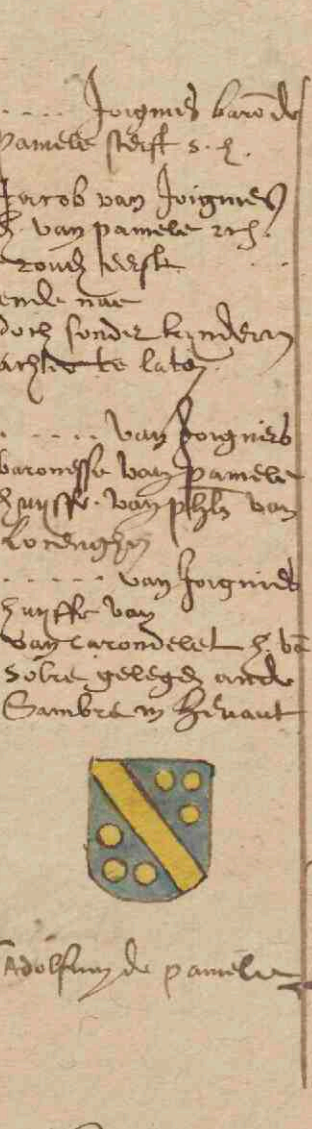 ..... Joignies barō de
Pamele sterft s. h.
Jacob van Joignies
h. van pamele
trouden eerst
ende nae
doch sonder kynderen
achter te laten
..... van Joignies
baronesse van pamele
huysfr. van phls van
..... van Joignies
huysfr van
van Carondelet h. vā
Solre gelegen an de
Sambre in Henaut
Adolfus de pamele